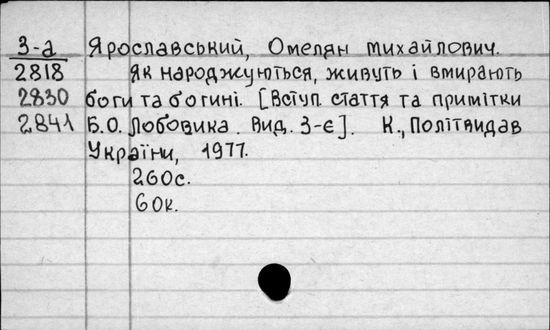 3-а Ярославський, Омелян Михайлович.
2818 Як народжуються, живуть і вмирають
2830 боги та богині. [Вступ. стаття та примітки
2841 Б.О. Лобовика. Вид. 3-є]. К., Політвидав
України, 1977.
260с.
60к.